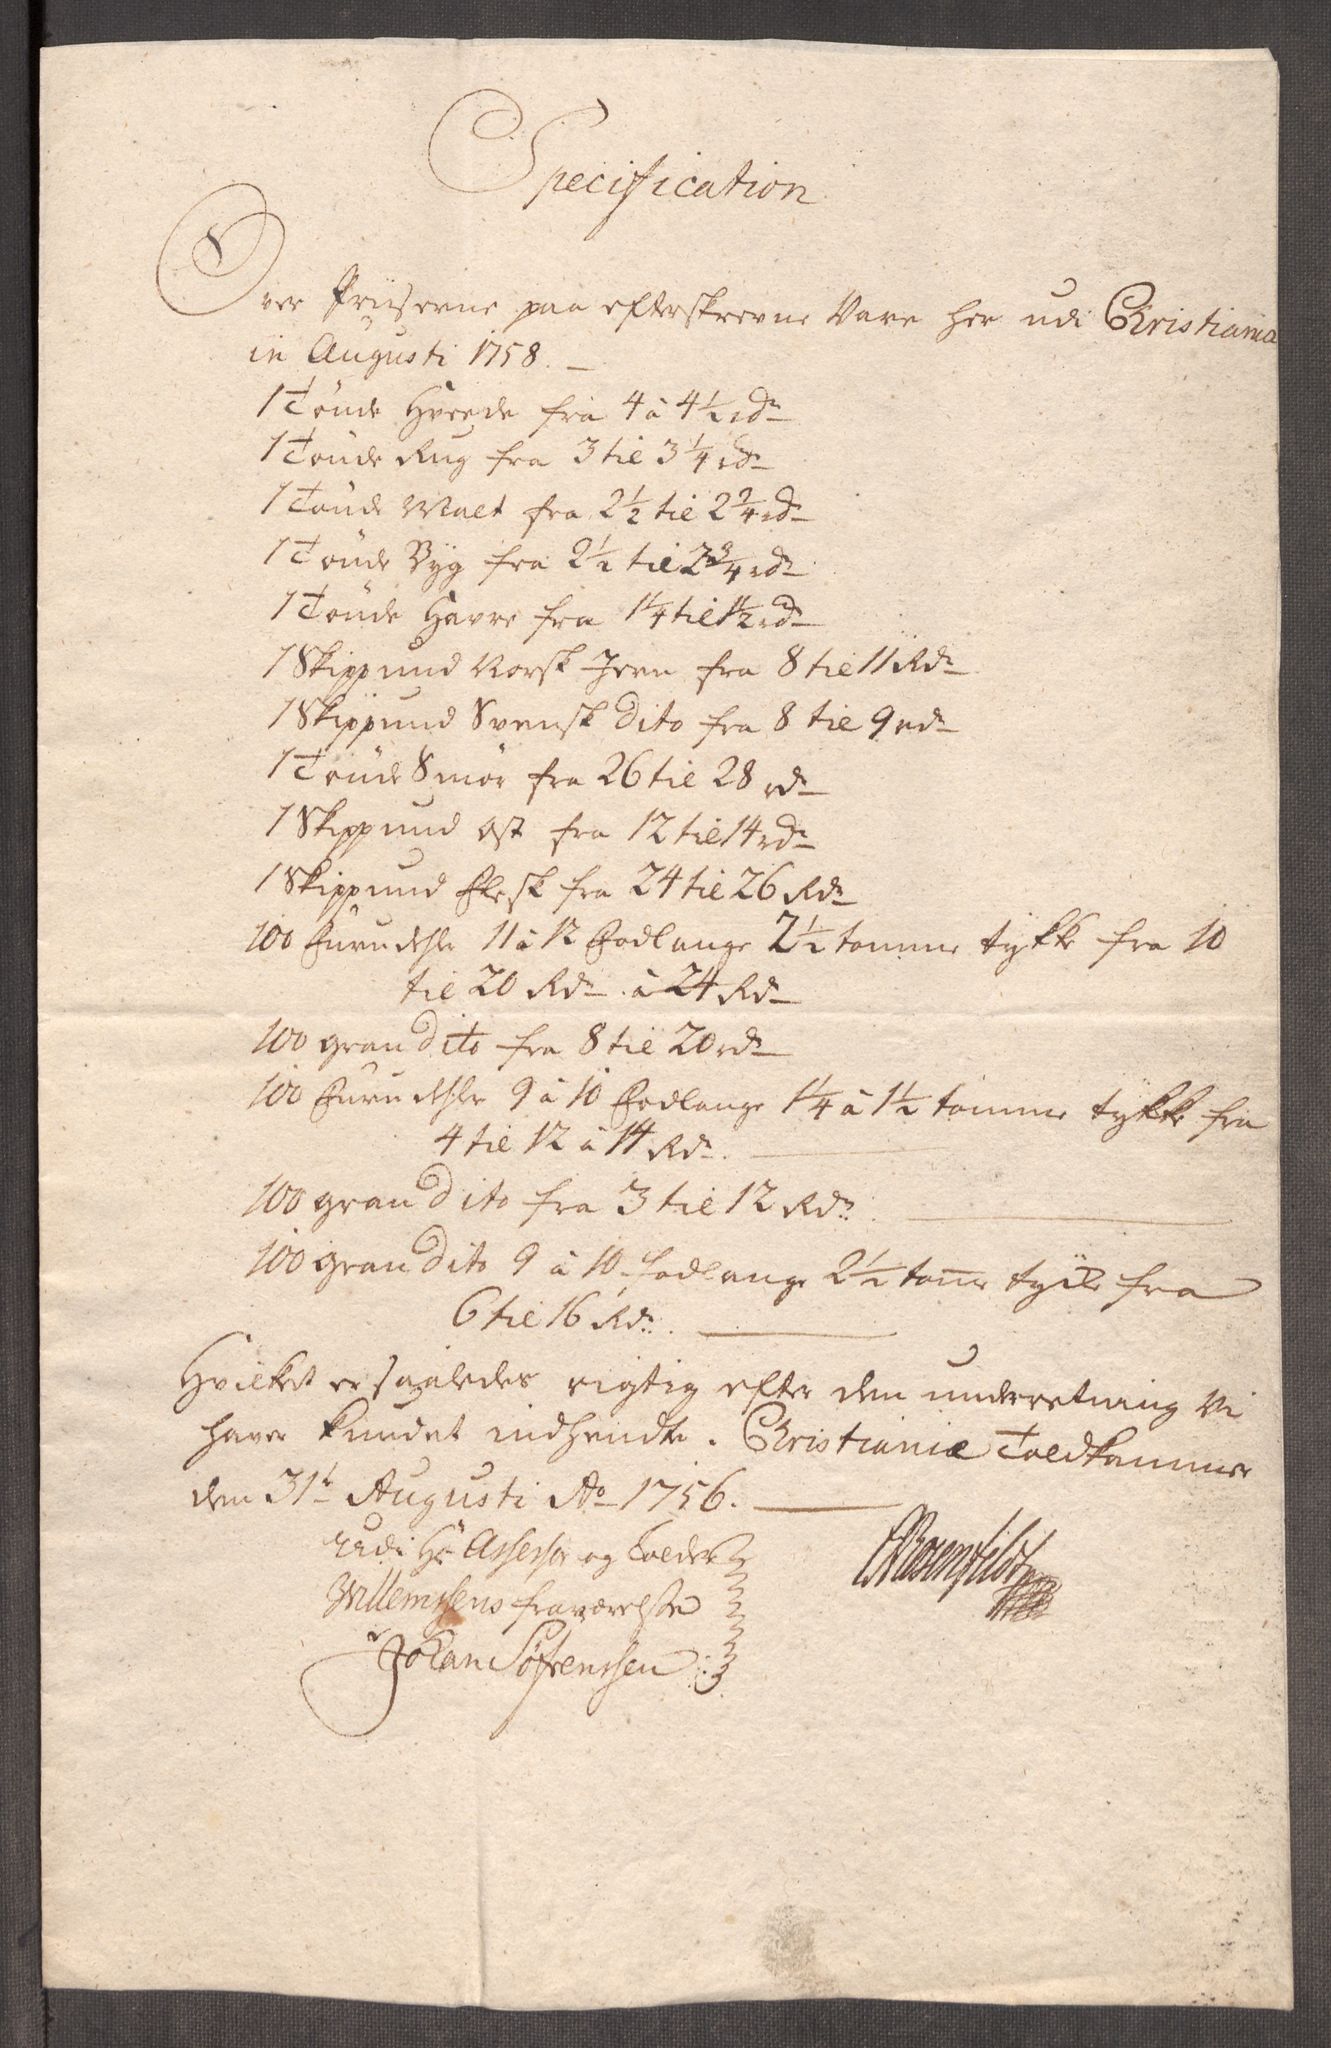 Specification
Over Priiserne paa efterskrevne Vare her udi Christiania
in Augusti 1758.
1 Tönde Hvede fra 4 à 4½ rdr
1 Tönde Rug fra 3 til 3¼ rdr
1 Tönde Malt fra 2½ til 2¾ rdr
1 Tönde Byg fra 2½ til 2¾ rdr
1 Tönde Havre fra 1¼ til 1½ rdr
1 Skippund Norsk Jern fra 8 til 11 Rdr
1 Skippund Svensk Dito fra 8 til 9 rdr
1 Tönde Smör fra 26 til 28 rdr
1 Skippund Ost fra 12 til 14 rdr
1 Skippund Flesk fra 24 til 26 Rdr
100 Furu dehler 11 à 12 Fod lange 2½ tomme tykke fra 10
til 20 Rdr à 24 Rdr
100 gran Dito fra 8 til 20 rdr
100 Furu dehler 9 à 10 Fod lange 1¼ à 1½ tomme tykke fra
4 til 12 à 14 Rdr.
100 gran Dito fra 3 til 12 Rdr.
100 gran Dito 9 à 10 fod lange 2½ tome tycke fra
6 til 16 Rdr.
Hvilket er saaledes rigtig efter den underretning Vi
haver kundet indhendte. Christianiæ Toldkammer
den 31t Augusti Ao 1756.
Udi Hr Assessor og Tolder
Willemsens fraværelse
Johan Söfrenssen
Rosenfildt